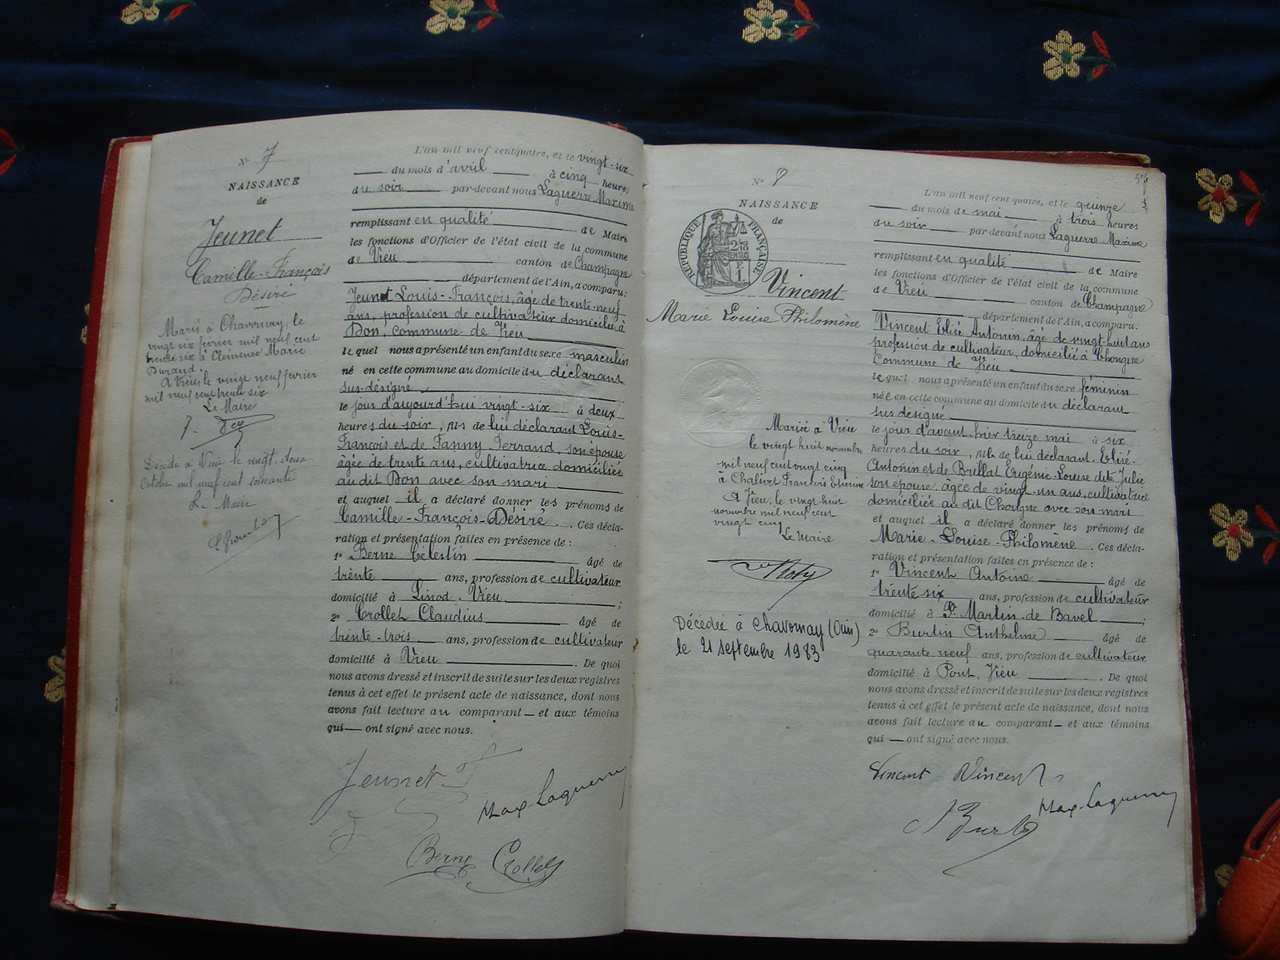 N° 7
NAISSANCE
de
Jeunet
Camille-François
Désiré
Marié à Chavornay, le
vingt six février mil neuf cent
trente six à Clémence Marie
Durand.
A Vieu le vingt neuf février
mil neuf cent trente six
Le Maire
Décédé à Vieu le vingt-deux
octobre mil neuf cent soixante
Le Maire
L'an mil neuf cent quatre, et le vingt-six
du mois d'avril à cinq heures
du soir par-devant nous Laguerre Maxime
remplissant en qualité de Maire
les fonctions d'Officier de l'état civil de la commune
de Vieu canton de Champagne
département de l'Ain, a comparu:
Jeunet Louis-François, âgé de trente-neuf
ans, profession de cultivateur domicilié à
Don, commune de Vieu
lequel nous a présenté un enfant du sexe masculin
né en cette commune au domicile du déclarant
sus-désigné
le jour d'aujourd'hui vingt-six à deux
heures du soir, fils de lui déclarant Louis-
François et de Fanny Ferrand, son épouse
âgée de trente ans, cultivatrice domiciliée
au dit Don avec son mari
et auquel il a déclaré donner les prénoms de
Camille-François-Désiré. Ces décla-
ration et présentation faites en présence de:
1° Berne Célestin âgé de
trente ans, profession de cultivateur
domicilié à Linod-Vieu;
2° Crollet Claudius âgé de
trente-trois ans, profession de cultivateur
domicilié à Vieu. De quoi
nous avons dressé et inscrit de suite sur les deux registres
tenus à cet effet le présent acte de naissance, dont nous
avons fait lecture au comparant et aux témoins
qui ont signé avec nous.
Jeunet
Max Laguerre
Berne Crollet
N° 8
NAISSANCE
de
RÉPUBLIQUE FRANÇAISE
Vincent
Marie Louise Philomène
Mariée à Vieu
le vingt huit novembre
mil neuf cent vingt cinq
à Chaliert François Etienne
A Vieu, le vingt huit
novembre mil neuf cent
vingt cinq
Le Maire
Décédée à Chavornay (Ain)
le 21 septembre 1983
L'an mil neuf cent quatre, et le quinze
du mois de mai à trois heures
du soir par-devant nous Laguerre Maxime
remplissant en qualité de Maire
les fonctions d'Officier de l'état civil de la commune
de Vieu canton de Champagne
département de l'Ain, a comparu.
Vincent Elisé Antonin, âgé de vingt huit ans
profession de cultivateur, domicilié à Chongne
Commune de Vieu
lequel nous a présenté un enfant du sexe féminin
née en cette commune au domicile du déclarant
sus désigné
le jour d'avant hier treize mai à six
heures du soir, fille de lui déclarant Elisé-
Antonin et de Brillat Eugénie-Louise dite Julie
son épouse âgée de vingt un ans, cultivatrice
domiciliés au dit Chongne avec son mari
et auquel il a déclaré donner les prénoms de
Marie-Louise-Philomène. Ces décla-
ration et présentation faites en présence de:
1° Vincent Antoine âgé de
trente six ans, profession de cultivateur
domicilié à St Martin de Bavel;
2° Burtin Anthelme âgé de
quarante neuf ans, profession de cultivateur
domicilié à Pont, Vieu. De quoi
nous avons dressé et inscrit de suite sur les deux registres
tenus à cet effet le présent acte de naissance, dont nous
avons fait lecture au comparant et aux témoins
qui ont signé avec nous.
Vincent Vincent
Max Laguerre